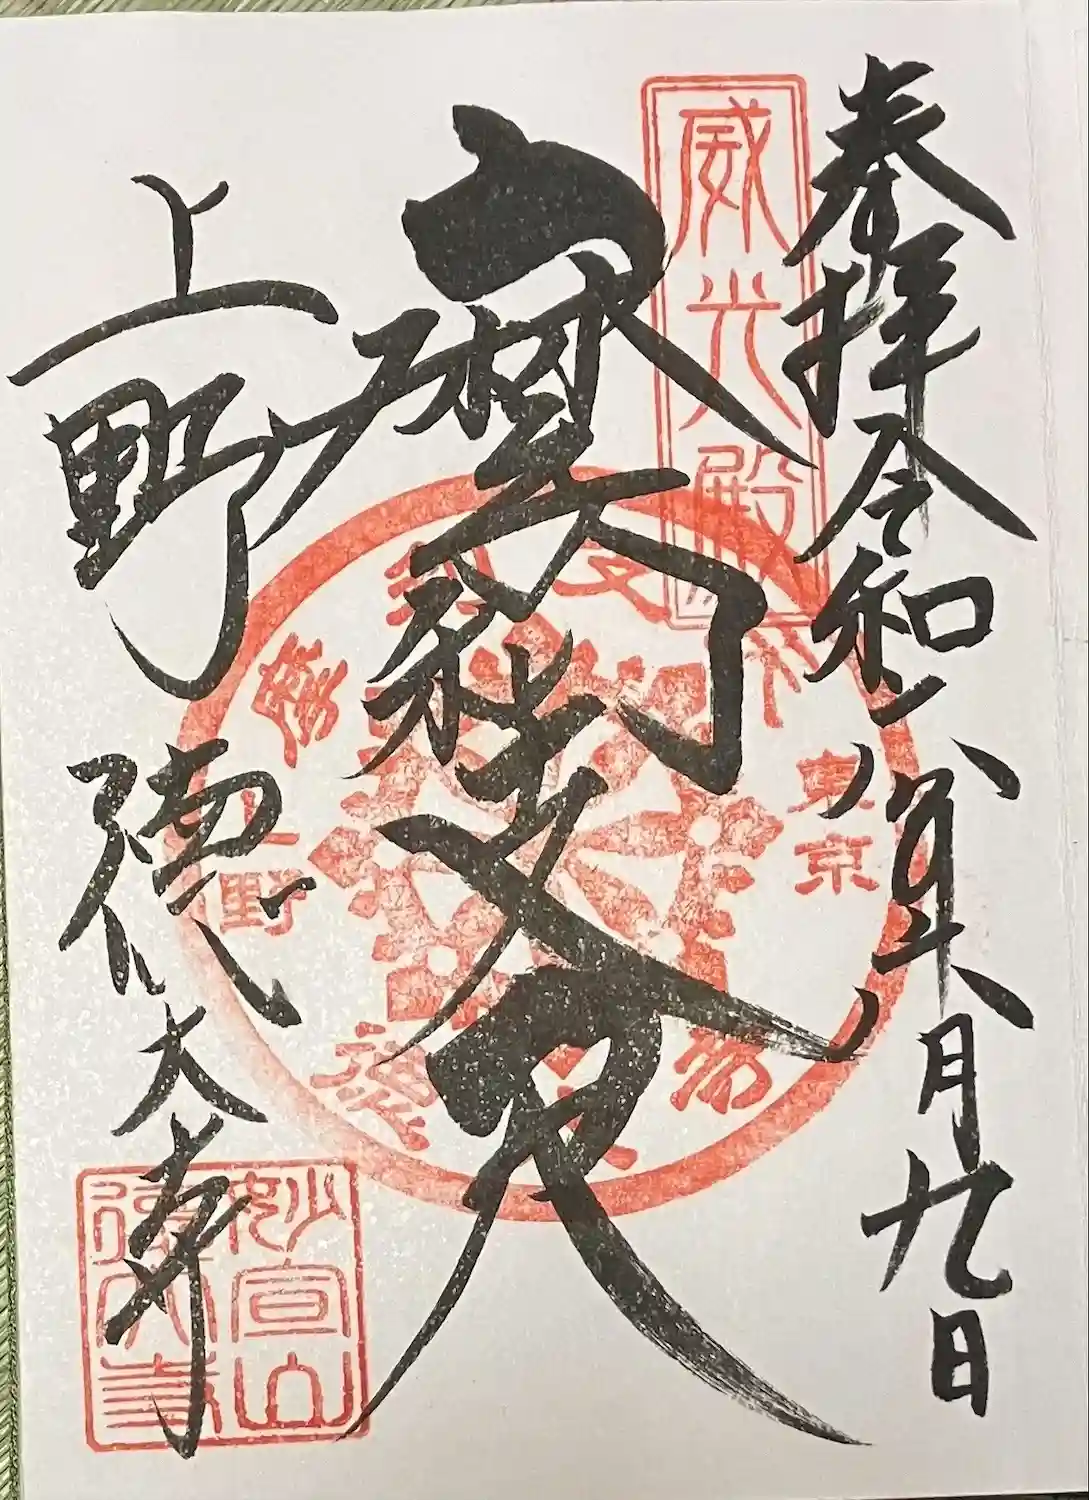 奉拝 令和六年八月九日
威光殿
摩利支天
摩利支天
東京
上野
上野 徳大寺
妙宣山
徳大寺